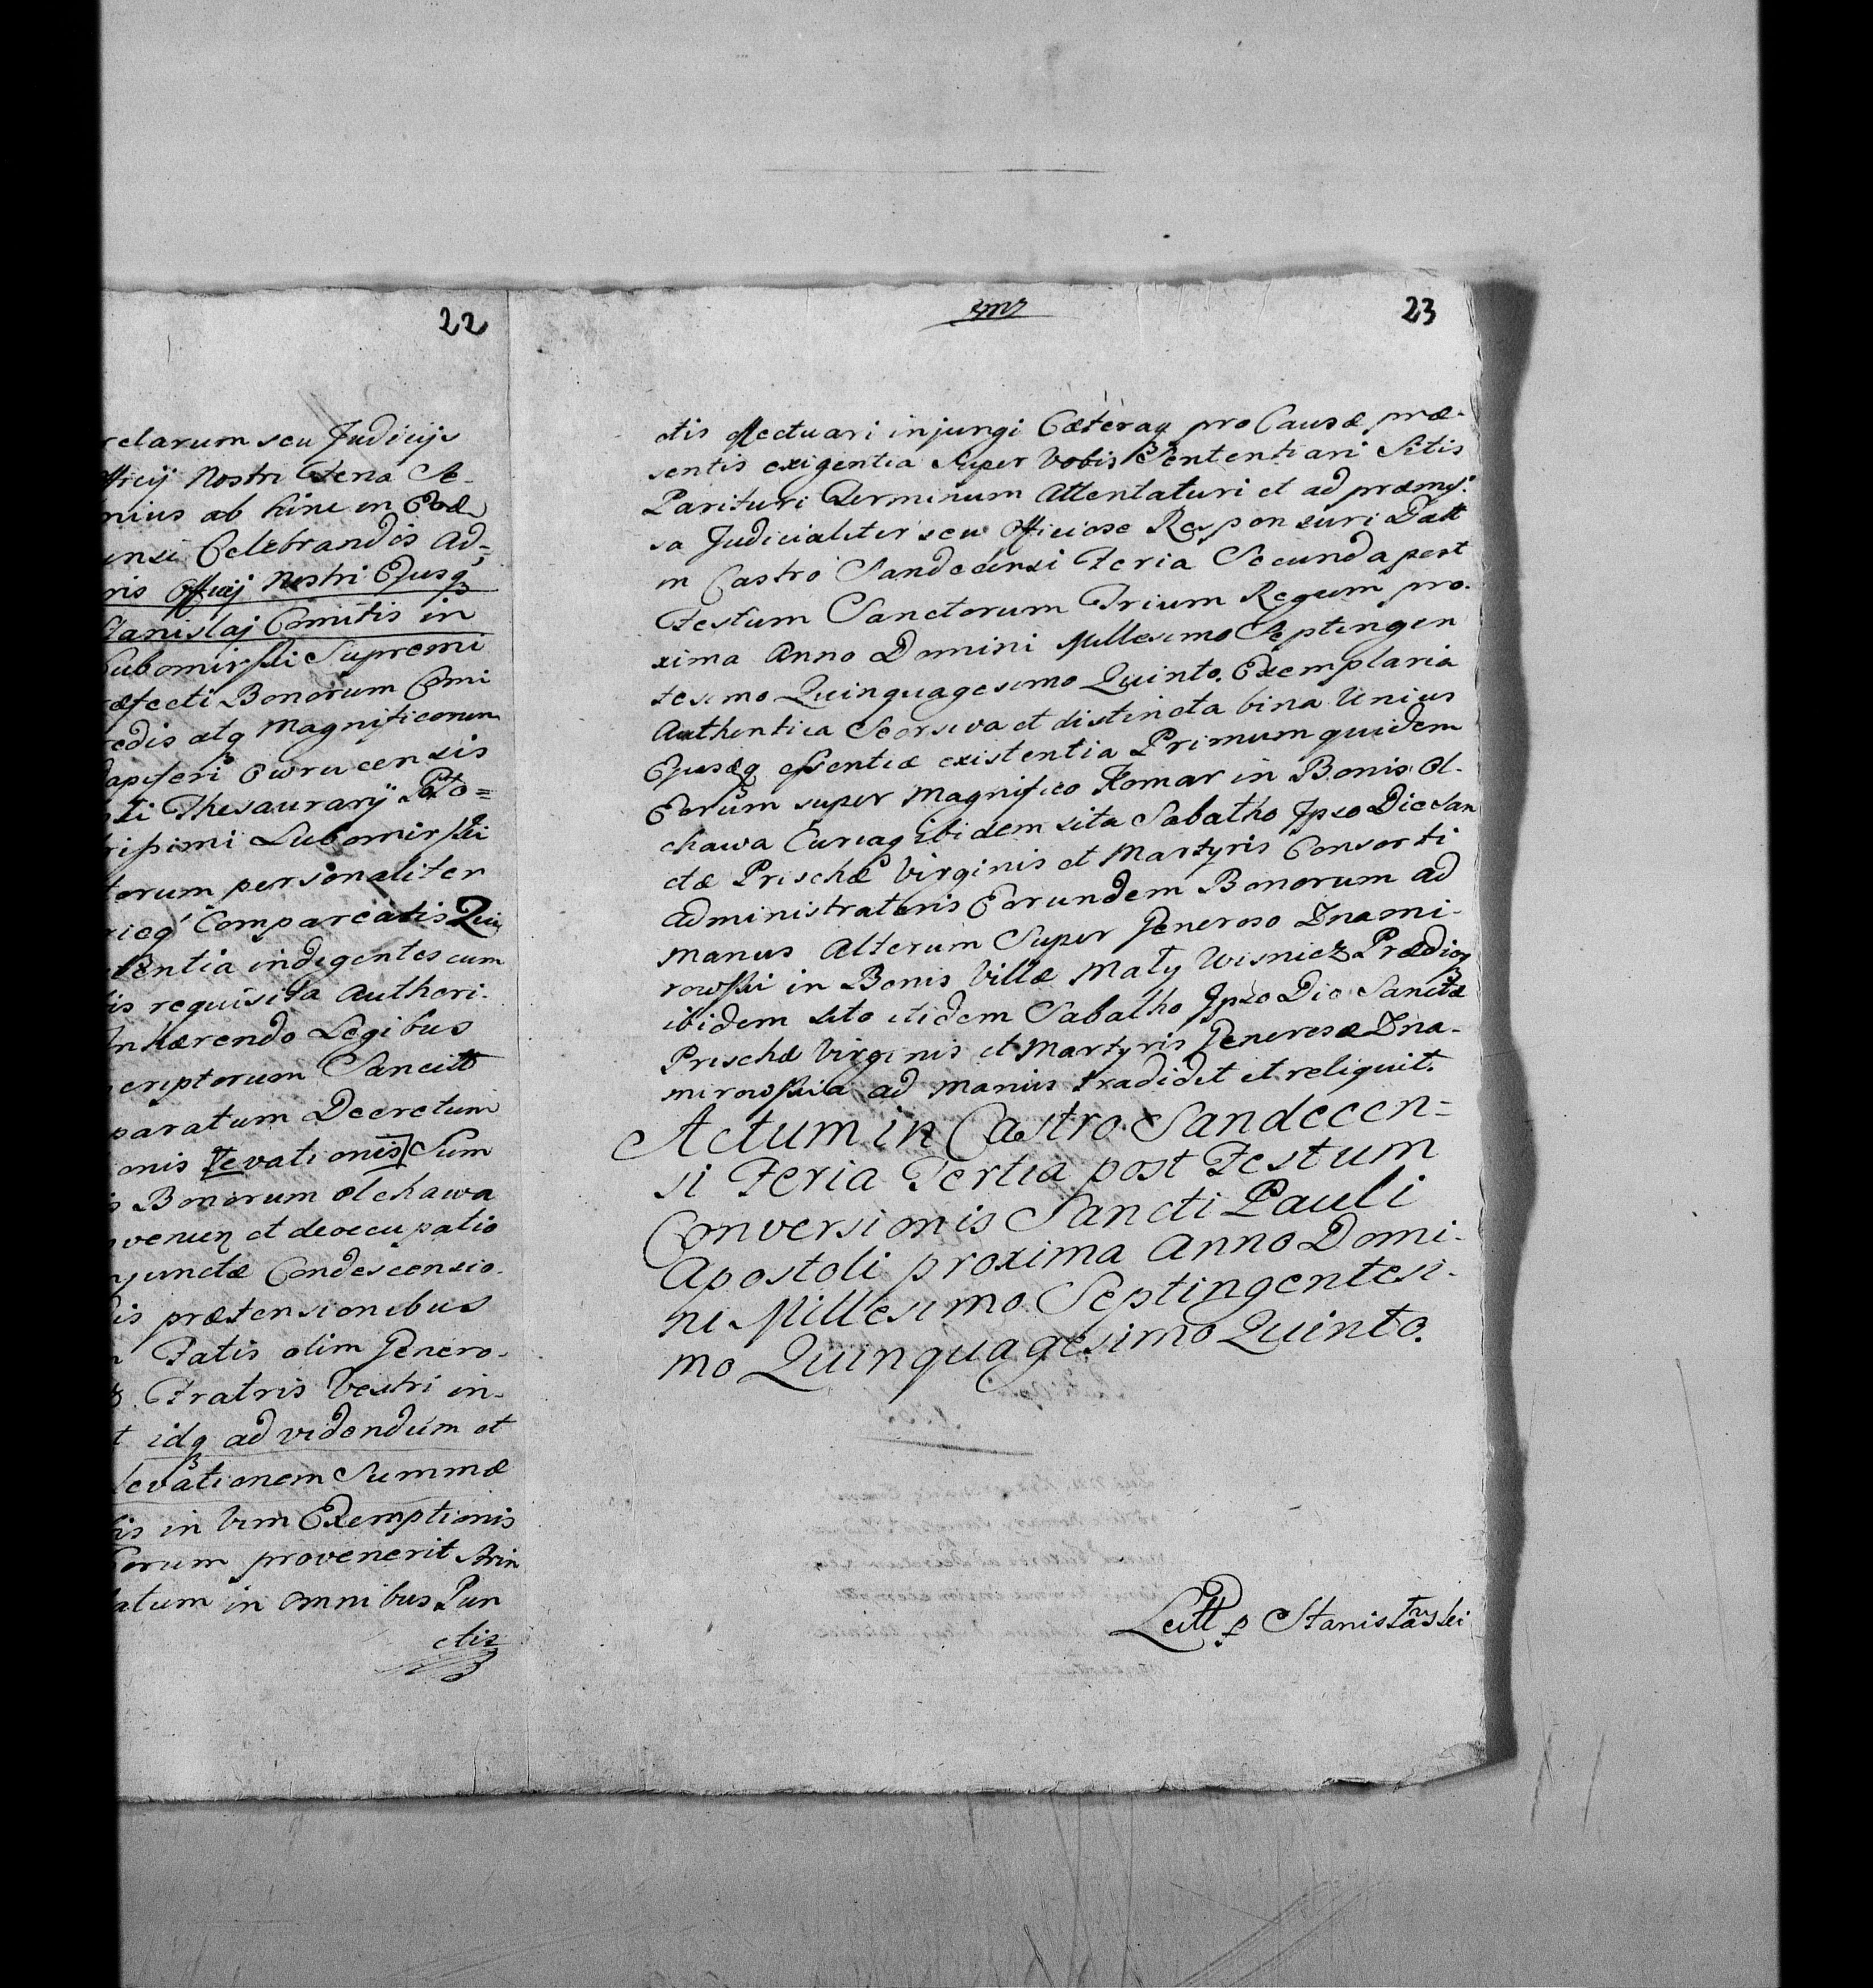 22
relarum seu Judicijs
fficij Nostri Feria Se-
nius ab hinc in
ensi Celebrandis Ad=
ris Officij Nostri Ejusq
Stanislaj Comitis in
Lubomirski Supremi
æfecti Bonorum Comi
redis atq Magnificorum
Dapiferi Owrucensis
Thesaurarij Poto=
rissimi Lubomirski
torum personaliter
ricq Compareatis Qui
tentia indigentes cum
is requisita Authori-
Inhærendo Legibus
criptorum Sancitt
paratum Decretum
onis Levationis Sum
s Bonorum Olchawa
venien et deoccupatio
njunctæ Condescensio-
is prætensionibus
Fatis olim Genero-
Fratris Vestri in-
t idq ad videndum et
levationem Summæ
is in Vim Exemptionis
orum provenerit Strin
latum in omnibus Pun
ctis
23
ctis effectuari injungi Cæteraq pro Causæ præ-
sentis exigentia super Vobis Sententiari Sitis
Parituri Terminum Attentaturi et ad præmis:
sa Judicialiter seu Officiose Responsuri Datt
in Castro Sandecensi Feria Secunda post
Festum Sanctorum Trium Regum pro-
xima Anno Domini Millesimo Septingen
tesimo Quinquagesimo Quinto. Exemplaria
Authentica Seorsiva et distincta bina Unius
Ejusdq essentiæ existentia Primum quidem
Eorum super Magnifico Komar in Bonis Ol-
chawa Curiaq ibidem sita Sabatho Ipso Die San
ctæ Prischæ Virginis et Martyris Consorti
Administratoris Eorundem Bonorum ad
manus Alterum Super Generoso Znami-
rowski in Bonis Villæ Mały Wisnicz Prædioq
ibidem sito itidem Sabatho Ipso Die Sanctæ
Prischæ Virginis et Martyris Generosæ Zna-
mirowskia ad manus tradidit et reliquit.
Actum in Castro Sandecen=
si Feria Tertia post Festum
Conversionis Sancti Pauli
Apostoli proxima Anno Domi-
ni Millesimo Septingentesi-
mo Quinquagesimo Quinto.
Lectt p Stanisławski